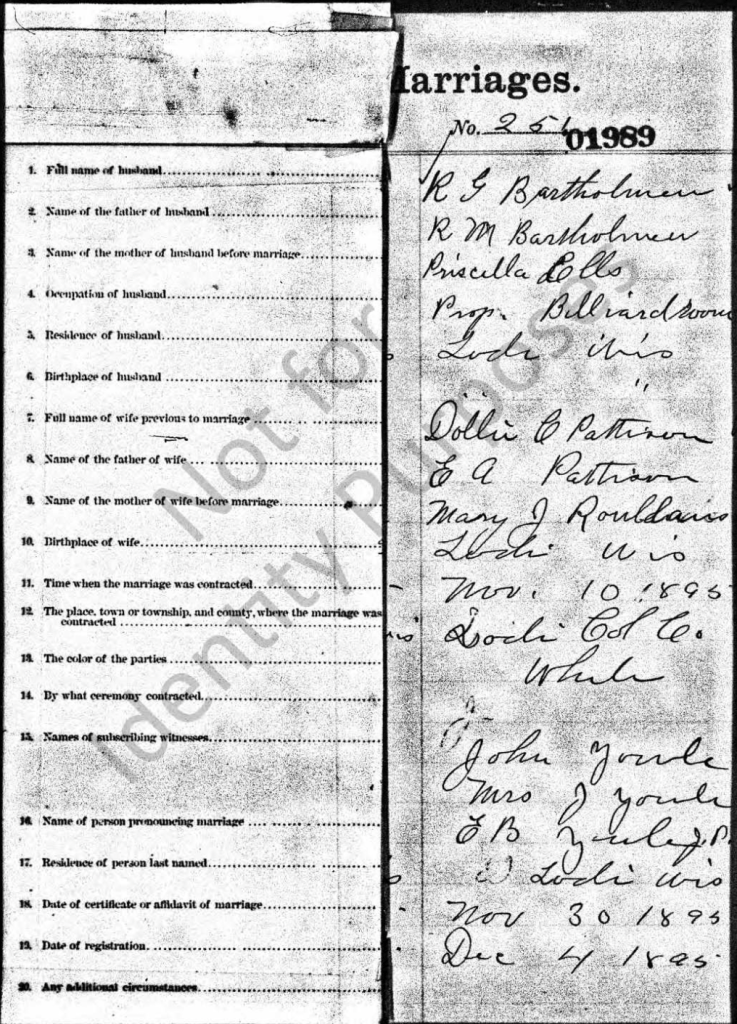 Marriages.
No. 251
01989
1. Full name of husband R G Bartholmew
2. Name of the father of husband R M Bartholmew
3. Name of the mother of husband before marriage Priscilla Ells
4. Occupation of husband Prop. Billiard room
5. Residence of husband Lodi Wis
6. Birthplace of husband " 
7. Full name of wife previous to marriage Dollie C Pattison
8. Name of the father of wife E A Pattison
9. Name of the mother of wife before marriage Mary J
10. Birthplace of wife Lodi Wis
11. Time when the marriage was contracted Nov. 10 1895
12. The place, town or township, and county, where the marriage was
contracted Lodi Col Co.
13. The color of the parties White
14. By what ceremony contracted
15. Names of subscribing witnesses John Youle
Mrs J Youle
16. Name of person pronouncing marriage E B Youle J.P.
17. Residence of person last named Lodi Wis
18. Date of certificate or affidavit of marriage Nov 30 1895
19. Date of registration Dec 4 1895
20. Any additional circumstances
Not for
Identity Purposes